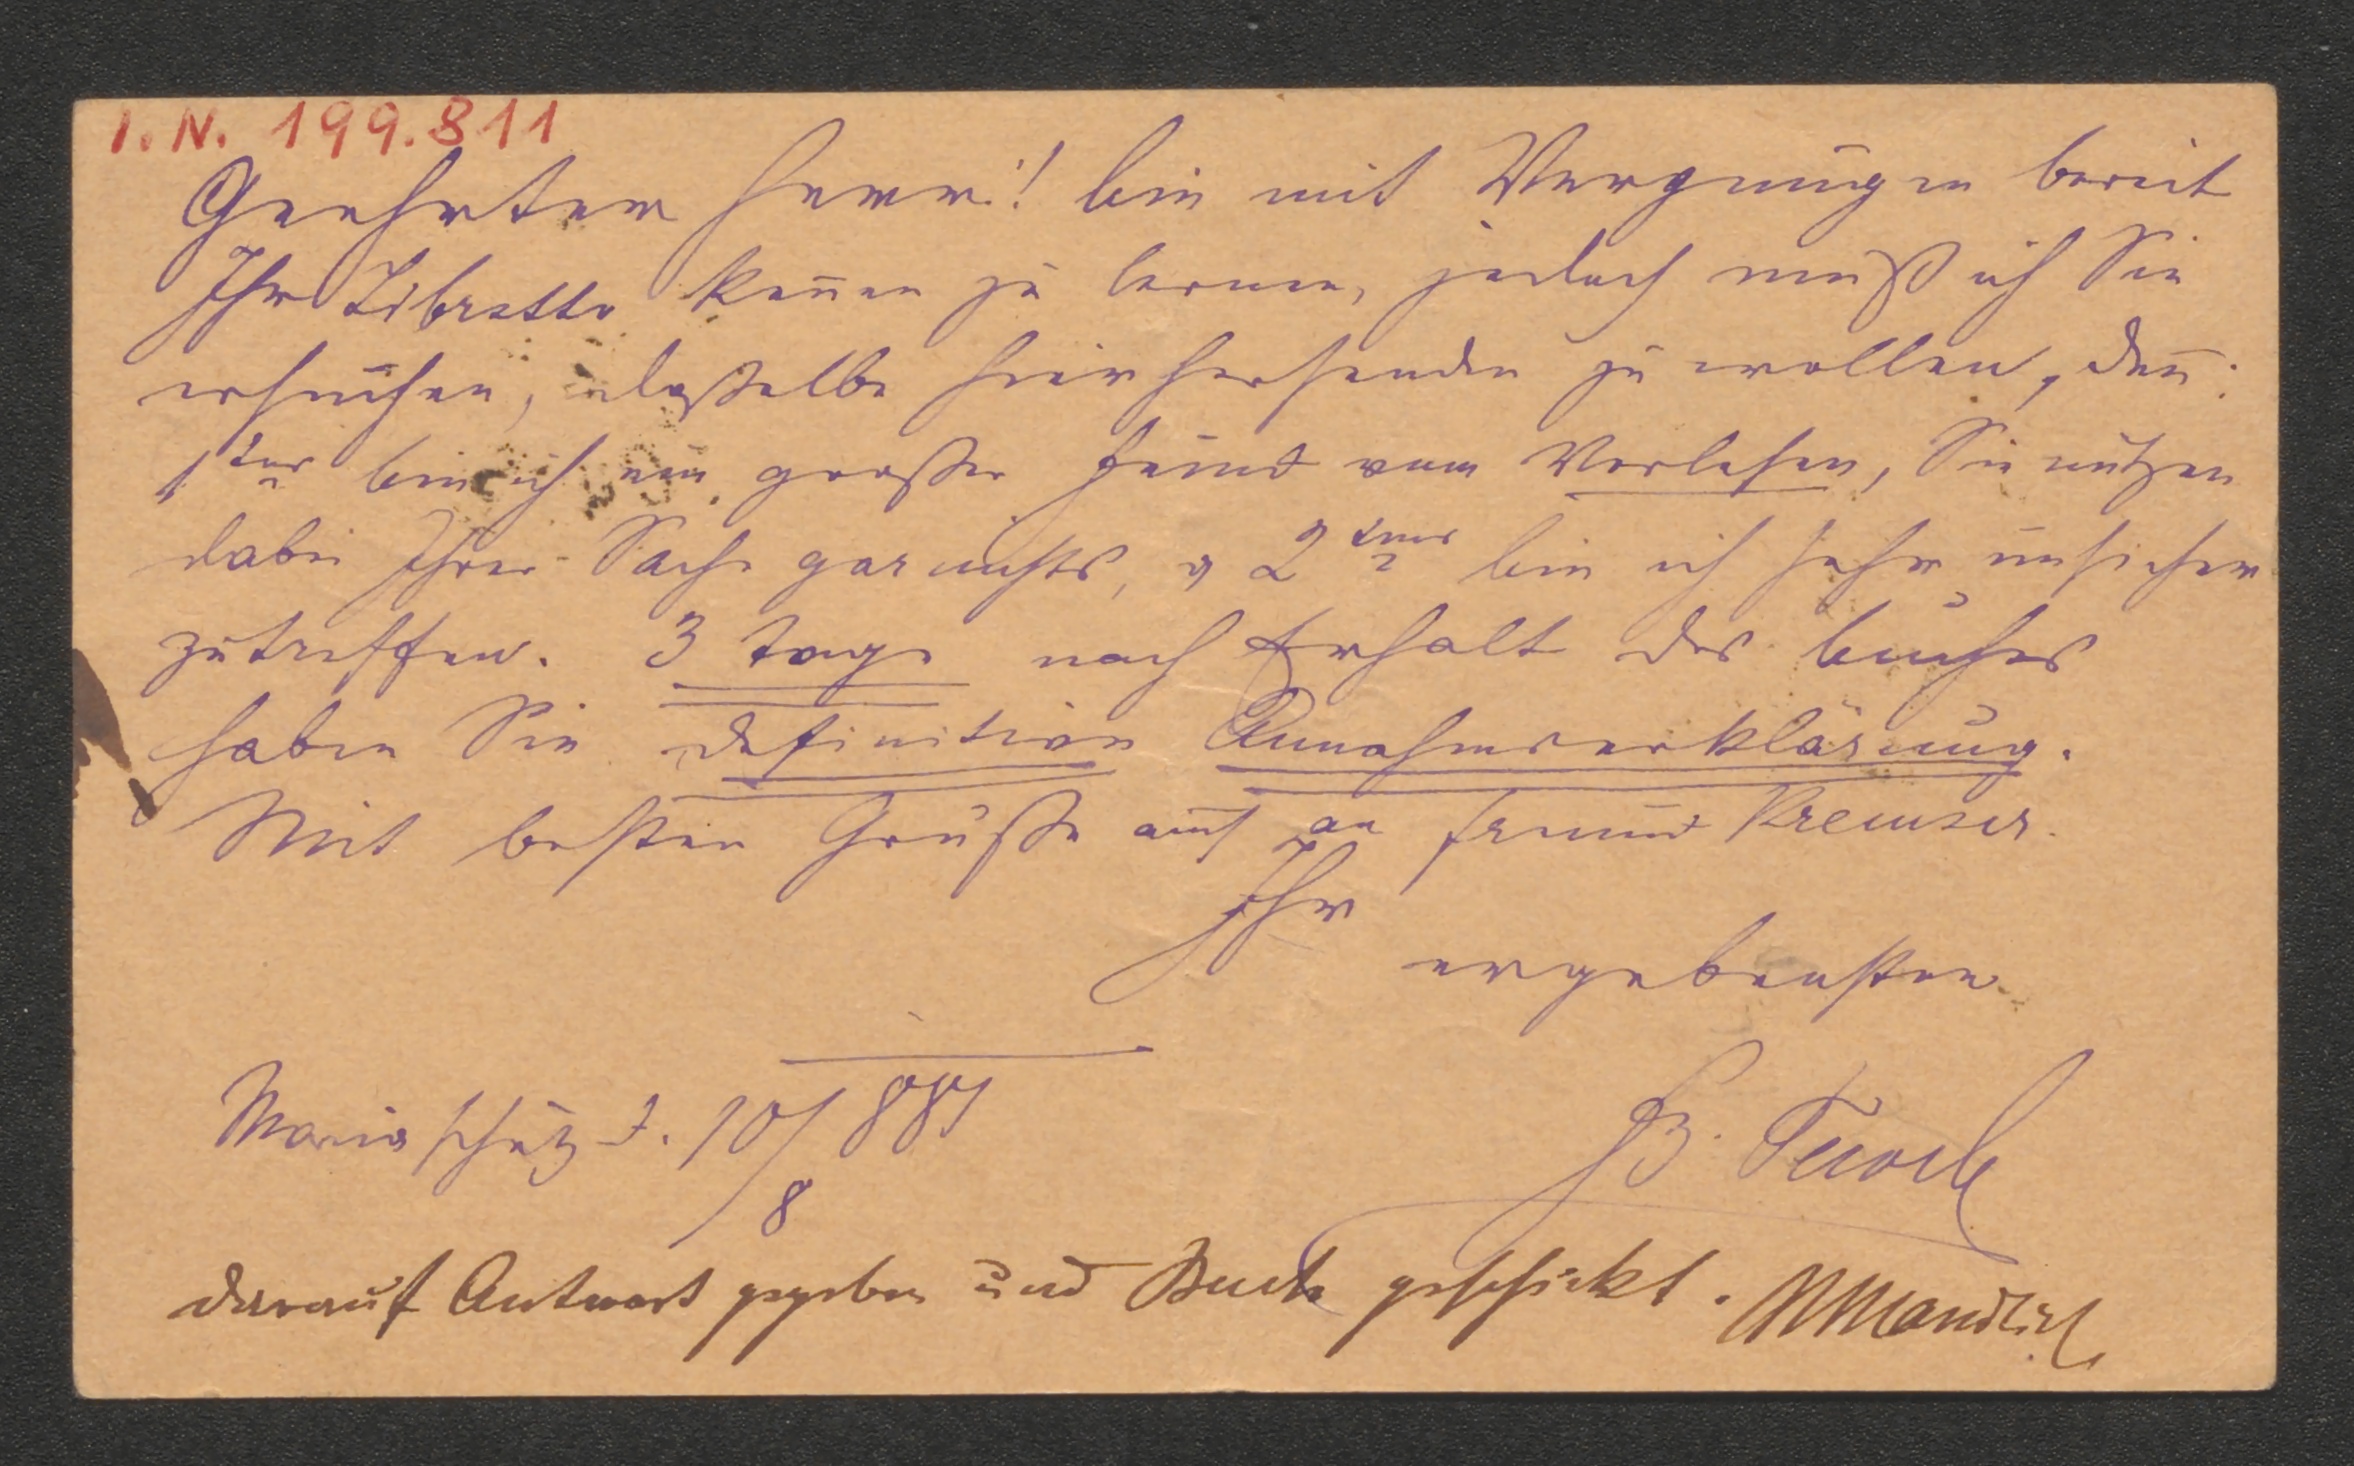 I. N. 199.811
Geehrter Herr! bin mit Vergnügen bereit
Ihr Libretto keñen zu lernen, jedoch muß ich Sie
ersuchen, daßelbe hierhersenden zu wollen, deñ:
1tens bin ich ein großer Feind vom Vorlesen, Sie nützen
dabei Ihrer Sache gar nichts, u 2tens bin ich sehr unsicher
zutreffen. 3 Tage nach Erhalt des Buches
haben Sie definitive Annahmserklärung.
Mit besten Grüße auch an Freund Kremser.
Ihr
ergebensten
Maria Schutz d. 10/8 881
darauf Antwort gegeben und Buch geschickt.